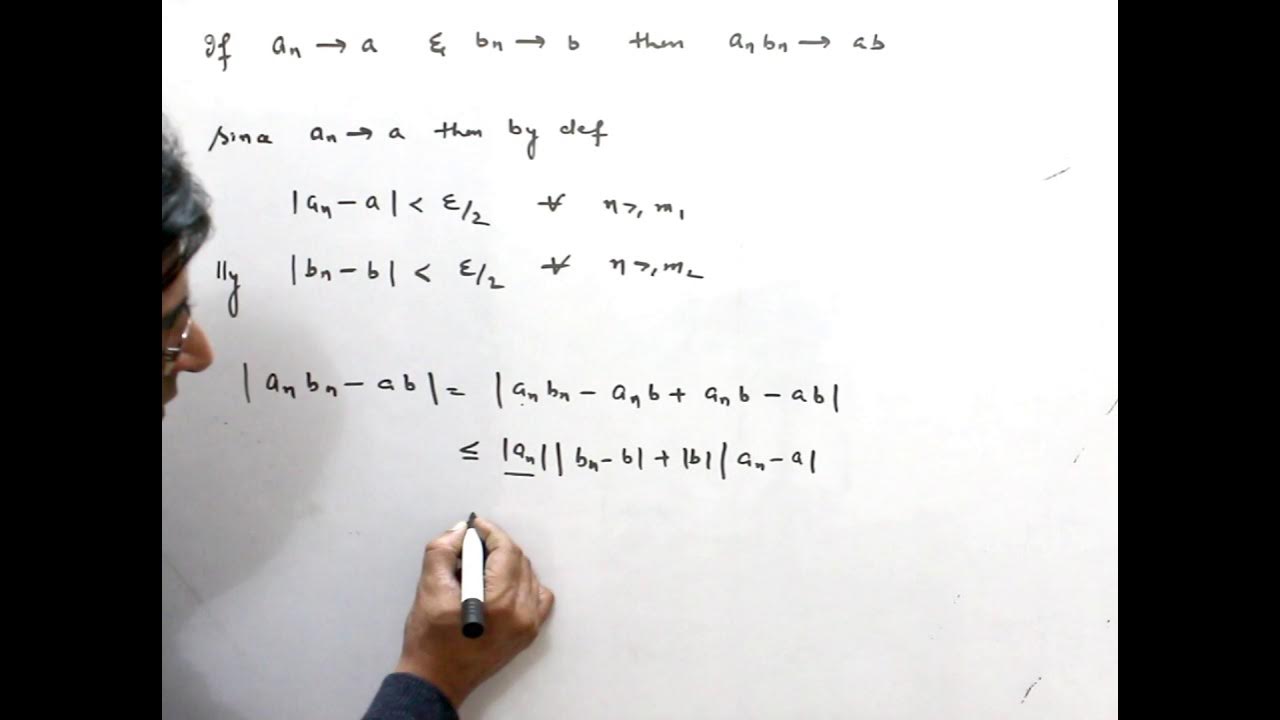 If aₙ → a & bₙ → b then aₙ bₙ → ab
Since aₙ → a then by def
|aₙ - a| < ε/2 ∀ n ≥ m₁
||ly |bₙ - b| < ε/2 ∀ n ≥ m₂
|aₙ bₙ - ab| = |aₙ bₙ - aₙ b + aₙ b - ab|
≤ |aₙ| |bₙ - b| + |b| |aₙ - a|